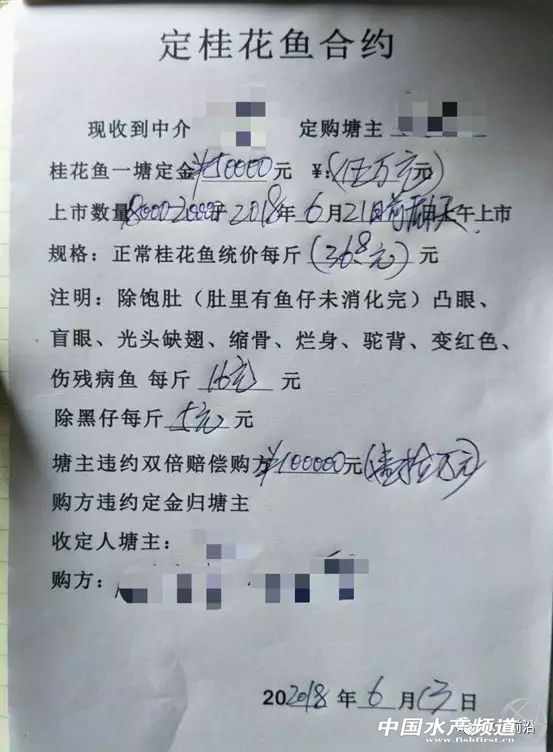 定桂花鱼合约
现收到中介 定购塘主
桂花鱼一塘定金¥50000元 ¥:(伍万元)
上市数量8000-2000于2018年6月21日前 午上市
规格：正常桂花鱼统价每斤(36.8元)元
注明：除饱肚（肚里有鱼仔未消化完）凸眼、
盲眼、光头缺翅、缩骨、烂身、驼背、变红色、
伤残病鱼 每斤 16元 元
除黑仔每斤 5元 元
塘主违约双倍赔偿购方¥100000元(壹拾万元)
购方违约定金归塘主
收定人塘主：
购方：
202018年6月13日
中国水产频道
www.fishfirst.cn
前沿